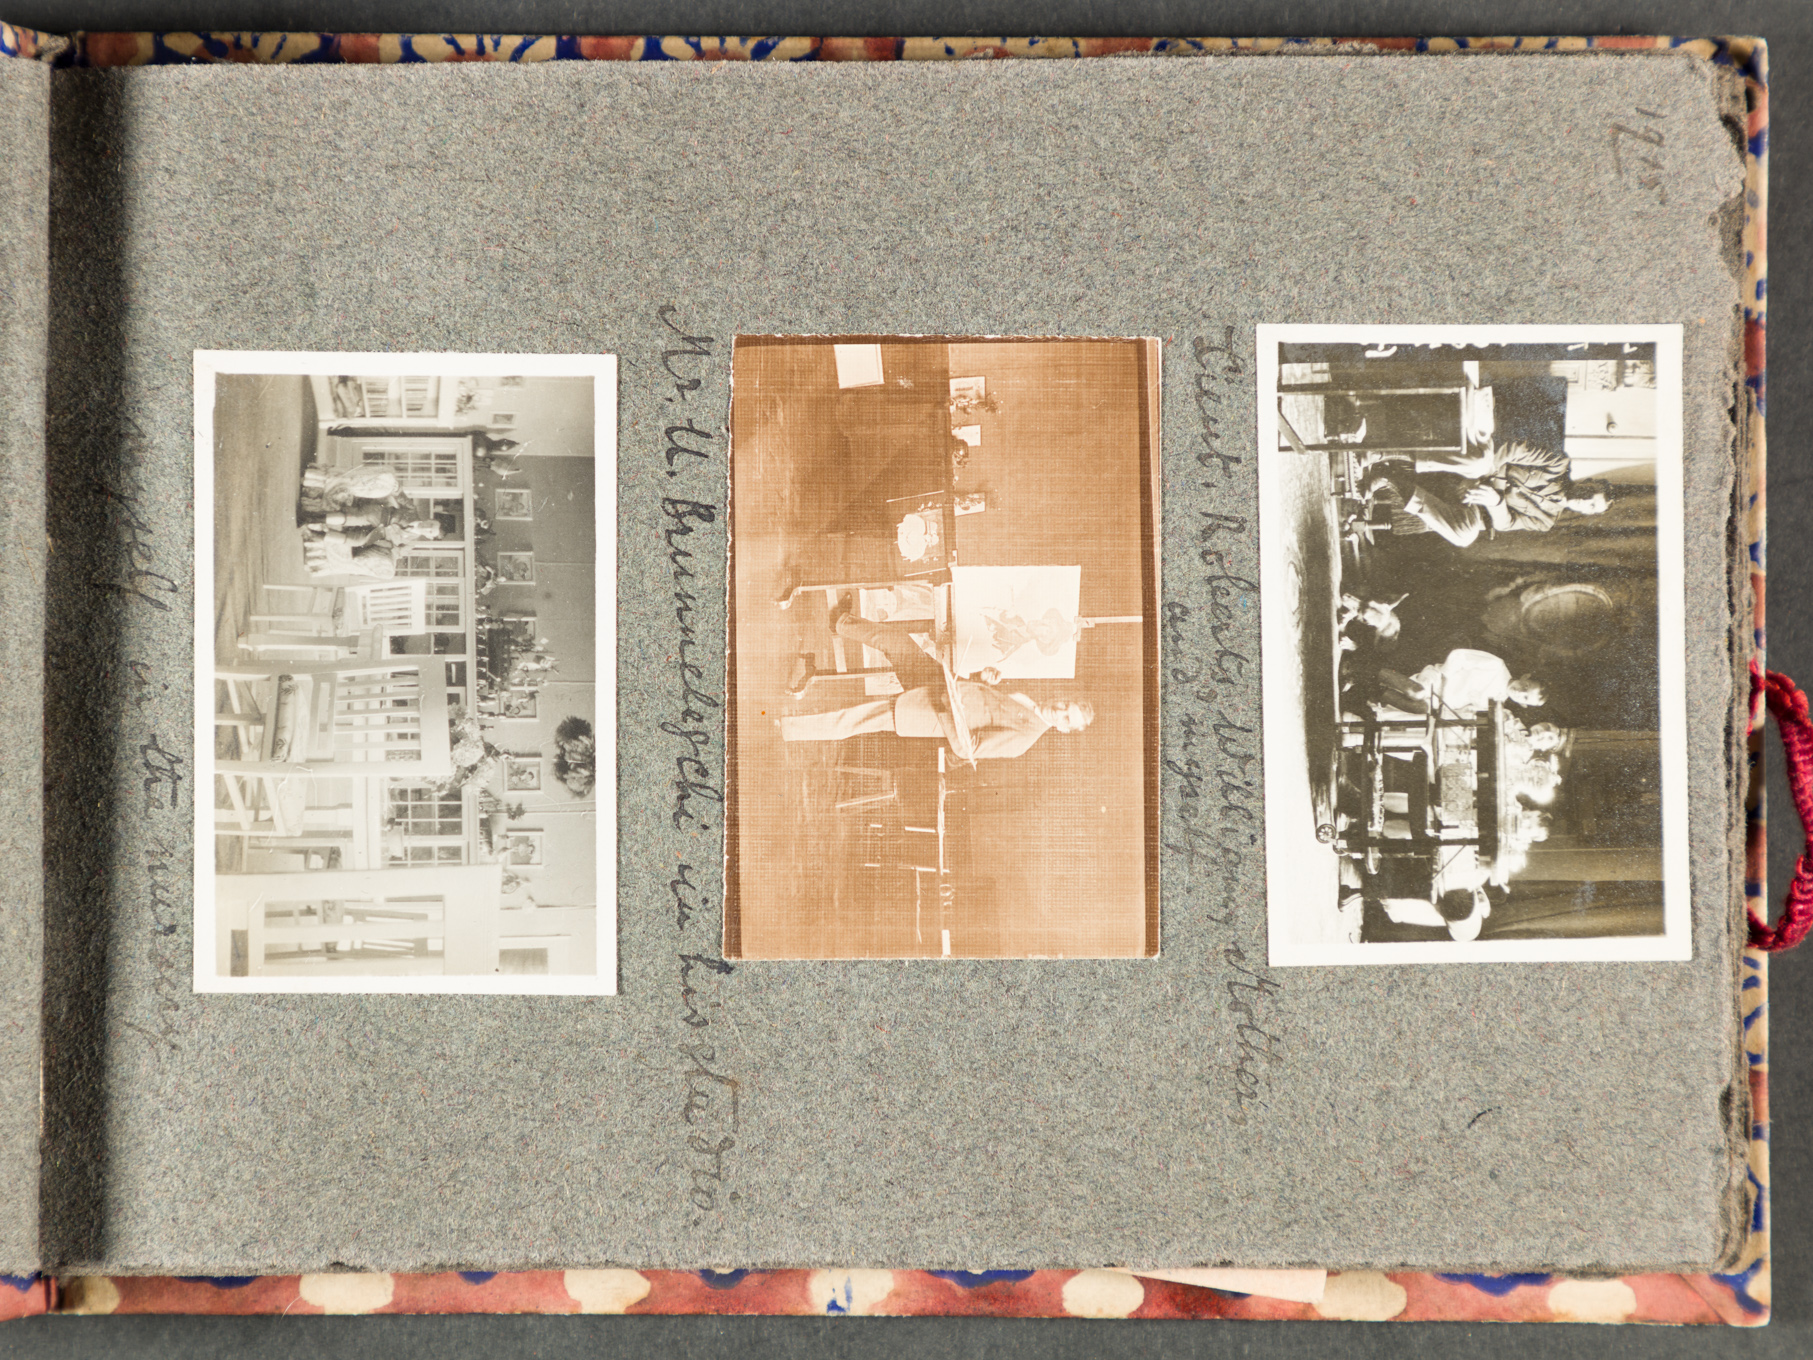 1915.
Lieut. Roberts, William, Mother,
and myself.
Mr. U. Brunnelegchi in his studio.
myself in the nursery